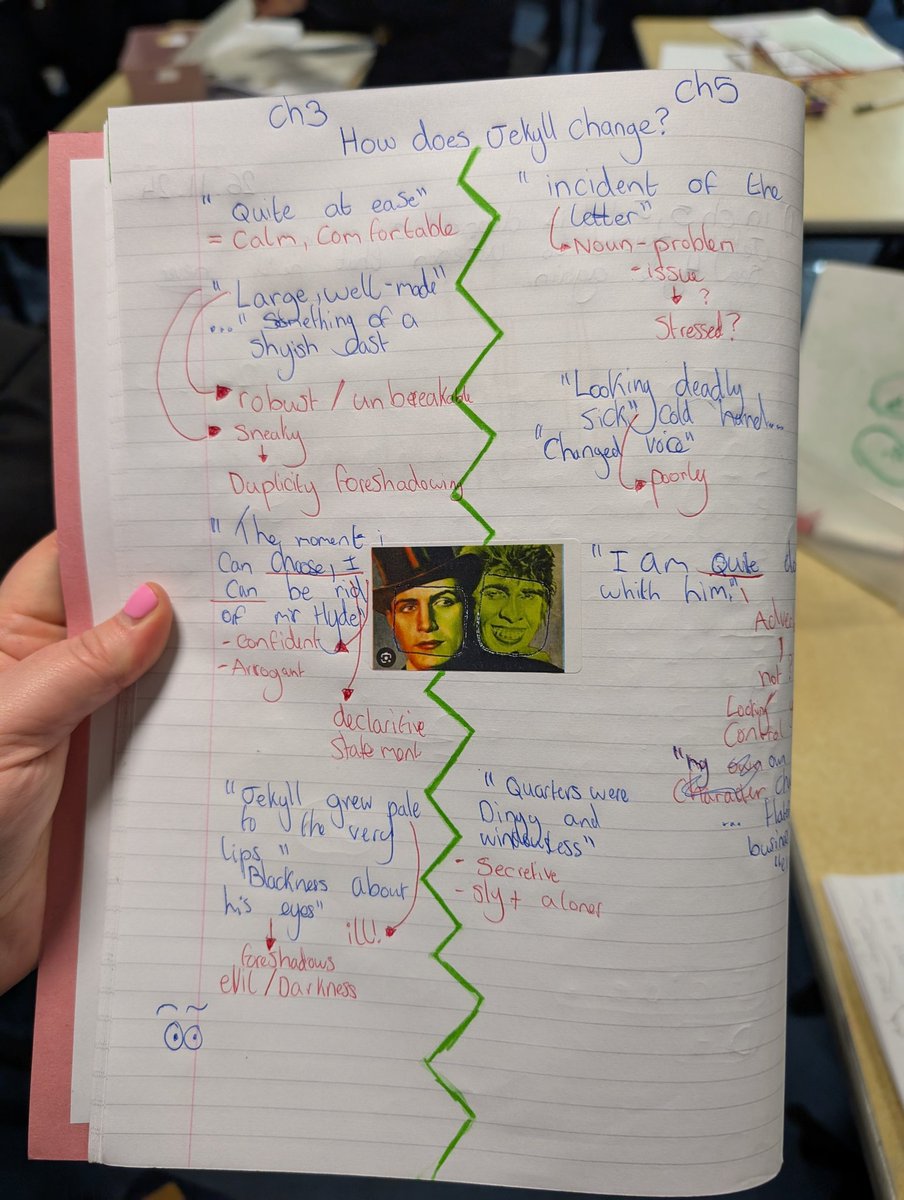 Ch3
Ch5
How does Jekyll change?
"Quite at ease"
= Calm, Comfortable
"Large, well-made"
..." Something of a
Shyish cast
robust / unbreakable
Sneaky
Duplicity foreshadowing
"The moment i
Can Choose, I
Can be rid
of mr Hyde"
- Confident
- Arrogant
declaritive
statement
"Jekyll grew pale
to the very
lips"
"Blackness about
his eyes"
ill!
foreshadows
evil/Darkness
"incident of the
letter"
Noun-problem
- issue
?
Stressed?
"Looking deadly
sick" cold hand...
"Changed voice"
poorly
"I am Quite
whith him."
not
Control
"my own
Character
...
"Quarters were
Dingy and
windowless"
- Secretive
- Sly + a loner